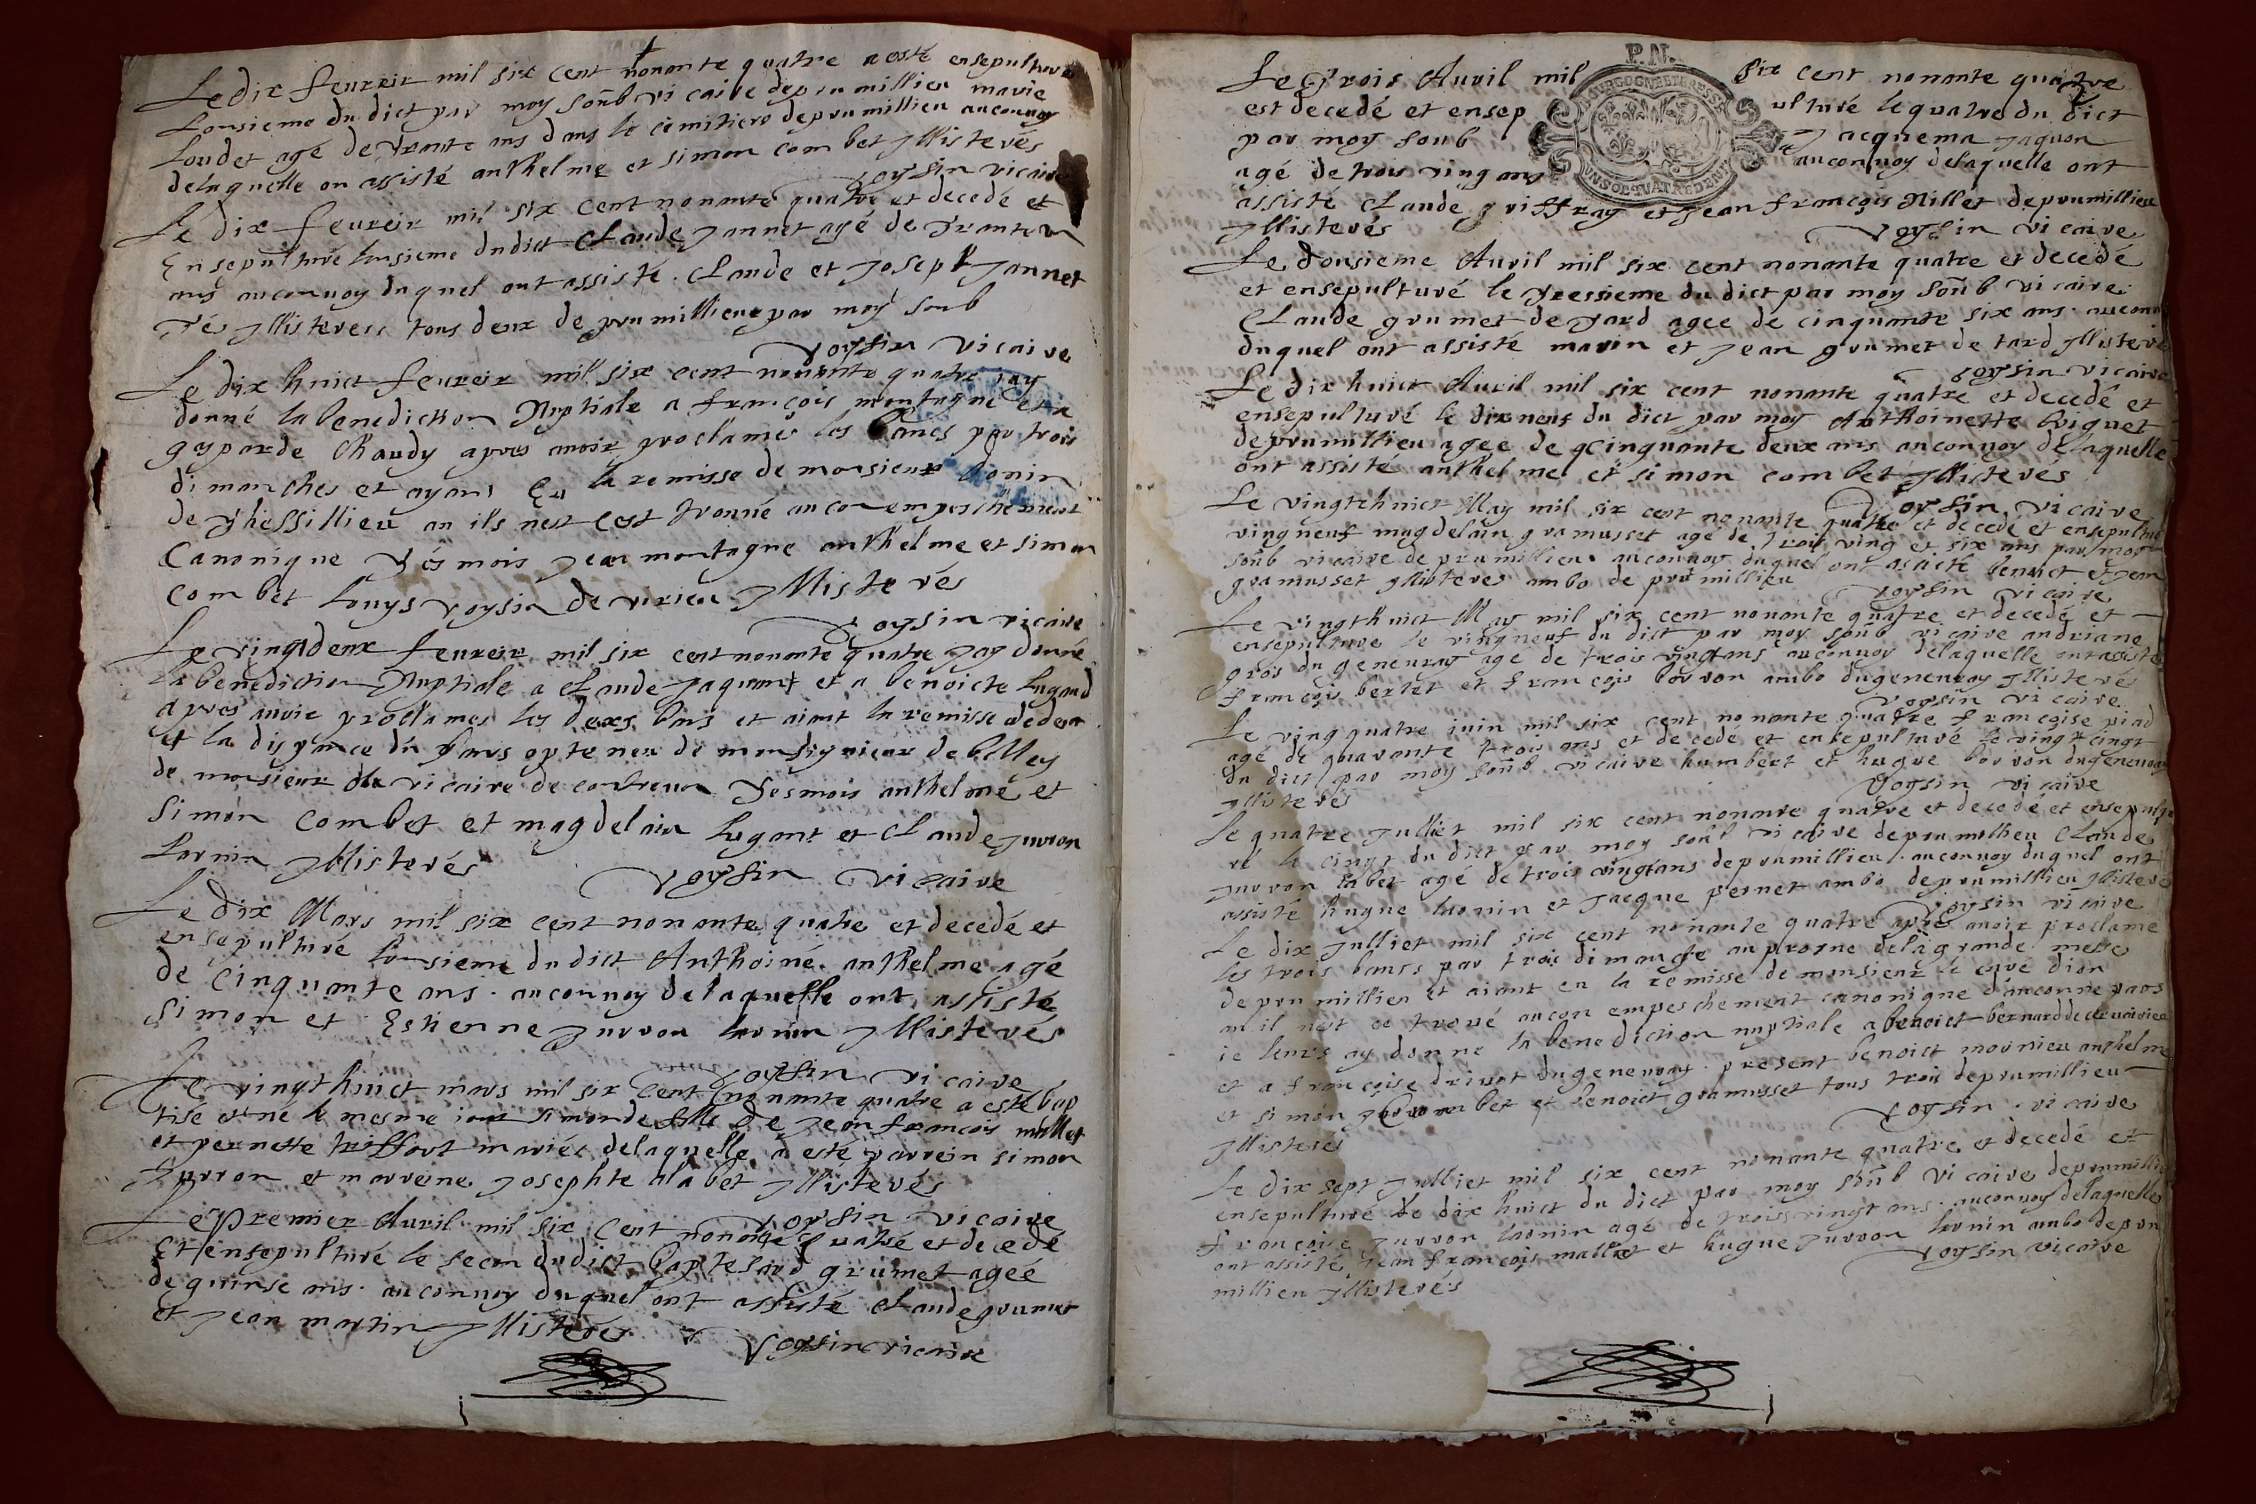 Le dix feureir mil six cent nonante quatre a esté ensepulture
Lonsieme du dict par moy soub vicaire de prumillieu marie
Loudet agé de trante ans dans le cimitiere de prumillieu auconuoy
delaquelle on assisté anthelme et simon combet Illisterés
Voysin vicaire
Le dix feureir mil six cent nonante quatre et decedé et
Ensepulturé lonsieme dudict Claude Jannet agé de trante
ans auconuoy duquel ont assisté Claude et Joseph Jannet
tous deux de prumillieu par moy soub
Voysin vicaire
Le dix huict feureir mil six cent nonante quatre jay
donné la benediction Nuptiale a françois montagne et a
gasparde Chaudy apres auoir proclamé les bancs par trois
dimanches et ayant Eu la remisse de monsieur bonin
de Thessillieu an ils nest cest trouué aucon empeschement
Canonique tésmois Jean montagne anthelme et simon
Combet Louys Voysin de virieu Illisterés
Voysin vicaire
Le vingtdeux feureir mil six cent nonante quatre jay donné
la benediction Nuptiale a Claude Jaquant et a benoicte lugand
apres auoir proclames les deux bans et aiant la remisse
et la dispance du bans opteneu de monsigneur de bellley
de monsieur vicaire de contreuon Tesmois anthelme et
Simon Combet et magdelain lugant et Claude Juvron
Larnin Illisterés
Voysin vicaire
Le dix Mars mil six cent nonante quatre et decedé et
ensepulturé lonsieme du dict Anthoine anthelme agé
de cinquante ans auconuoy delaquelle ont assisté
Simon et Estienne Jurron larnin Illisterés
Voysin vicaire
Le vingt huict mars mil six cent nonante quatre a esté bap
tisé et né le mesme iour simonde fille de Jean francois mallet
et pernette triffort mariés delaquelle a esté parrein simon
Jurron et marreine Josephte Illisterés
Voysin vicaire
Le Premier Auril mil six cent nonante quatre et decedé
Et ensepulturé le secon dudict grumet ageé
de quinse ans auconuoy duquel ont assisté Claude grumet
et Jean martin Illisterés
Voysin vicaire
P.N.
BOURGOGNE BRESSE
UN SOL QUATRE DEN
Le Trois Auril mil six cent nonante quatre
est decedé et ensepulturé le quatre du dict
par moy soub Jacquema Jaquon
agé de trois ving ans auconuoy delaquelle ont
assisté Claude griffray et Jean françois Millet de prumillieu
Illisterés
Voysin vicaire
Le dousieme Auril mil six cent nonante quatre et decedé
et ensepulturé le tressieme du dict par moy soub vicaire
Claude grumet de tard agee de cinquante six ans
duquel ont assisté marin et Jean grumet de tard
Voysin vicaire
Le dix huict Auril mil six cent nonante quatre et decedé et
ensepulturé le dixneuf du dict par moy Anthoinette biguet
deprumillieu agee de cinquante deux ans auconuoy delaquelle
ont assisté anthelme et simon combet Illisterés
Voysin vicaire
Le vingtehuict May mil six cent nonante quatre et decedé et ensepulturé
vingneuf magdelain gramusset agé de trois ving et six ans par moy
soub vicaire de prumillieu auconuoy duquel ont assisté benoict et Jean
gramusset Illisteres ambo de prumillieu
Voysin vicaire
Le vingthuict May mil six cent nonante quatre et decedé et
ensepulturé le vingneuf du dict par moy soub vicaire andriane
gros du geneuray agé de trois vingtans auconuoy delaquelle ont assisté
françois bertet et françois borron ambo dugeneuray Illisterés
Voysin vicaire
Le vingquatre iuin mil six cent nonante quatre françoise piad
agé de quarante trois ans et decedé et ensepulturé le vingtcinq
du dict par moy soub vicaire humbert et hugue borron dugeneuray
Illisterés
Voysin vicaire
Le quatre Julliet mil six cent nonante quatre et decedé et ensepultu
ré le cinq du dict par moy soub vicaire deprumillieu Claude
Jurron agé de trois vingtans deprumillieu auconuoy duquel ont
assisté hugue larnin et Jacque pernet ambo deprumillieu
Voysin vicaire
Le dix Julliet mil six cent nonante quatre apre auoir proclamé
les trois bancs par trois dimanche auprosne delagrande messe
deprumillieu et aiant eu la remisse de monsieur le curé dion
an il nest ce troué aucon empeschement canonique
ie leurs ay donné la benediction nuptiale abenoict bernard
et a françoise driuot dugeneuray present benoict mornieu anthelme
et simon combet et benoict gramusset tous trois deprumillieu
Illisteres
Voysin vicaire
Le dixsept Julliet mil six cent nonante quatre et decedé et
ensepulturé le dix huict du dict par moy soub vicaire deprumillieu
françoise Jurron larnin agé de troisvingt ans auconuoy delaquelle
ont assisté Jean françois mallet et hugue Jurron larnin ambo depru
millieu Illisterés
Voysin vicaire